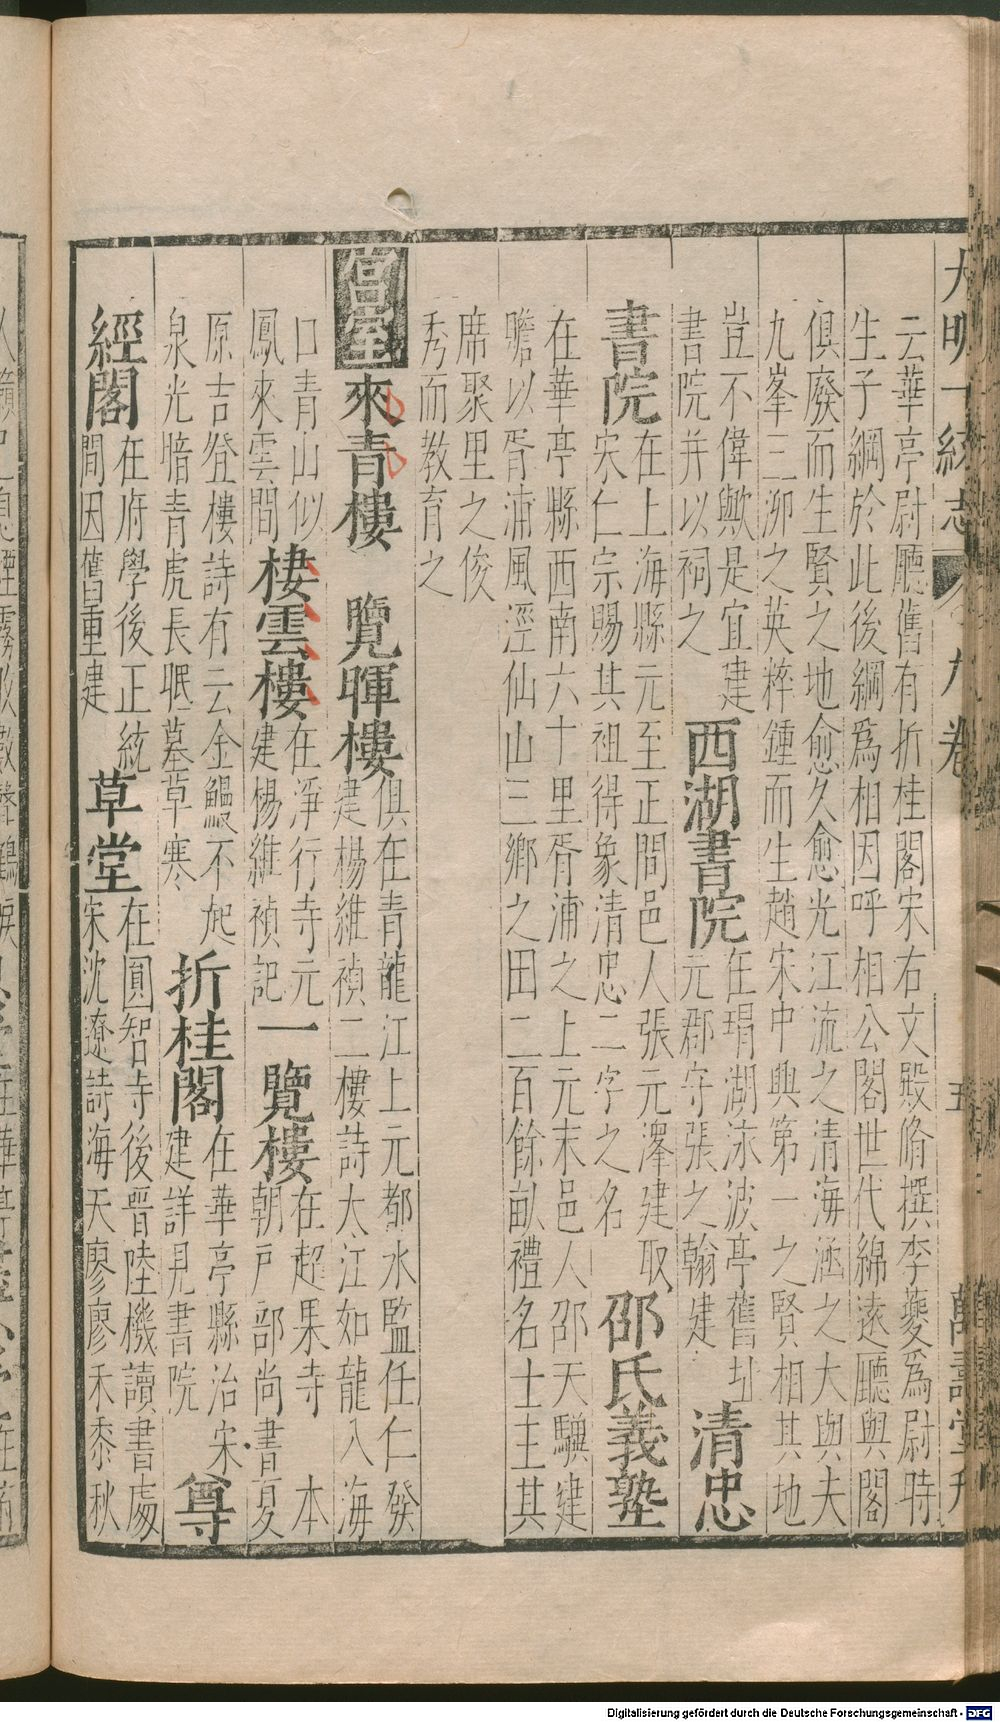 大明一統志 九卷 五 萬壽堂刋
云華亭尉廳舊有折桂閣宋右文殿脩撰李夔爲尉時
生子綱於此後綱爲相因呼相公閣世代綿遠廳與閣
俱廢而生賢之地愈久愈光江流之清海涵之大與夫
九峯三泖之英粹鍾而生趙宋中興第一之賢相其地
豈不偉歟是宜建
書院并以祠之
西湖書院
在瑁湖泳波亭舊址
元郡守張之翰建
清忠
書院
在上海縣元至正間邑人張元澤建取
宋仁宗賜其祖得象清忠二字之名
邵氏義塾
在華亭縣西南六十里胥浦之上元末邑人邵天驥建
贍以胥浦風涇仙山三鄉之田二百餘畝禮名士主其
席聚里之俊
秀而教育之
宫室
來青樓
覽暉樓
俱在青龍江上元都水監任仁發
建楊維禎二樓詩大江如龍入海
口青山似
鳳來雲間
棲雲樓
在淨行寺元
建楊維禎記
一覽樓
在超果寺 本
朝戸部尚書夏
原吉登樓詩有云金鰻不起
泉光暗青虎長眠墓草寒
折桂閣
在華亭縣治宋
建詳見書院
尊
經閣
在府學後正統
間因舊重建
草堂
在圓智寺後晋陸機讀書處
宋沈遼詩海天廖廖禾黍秋
Digitalisierung gefördert durch die Deutsche Forschungsgemeinschaft - DFG